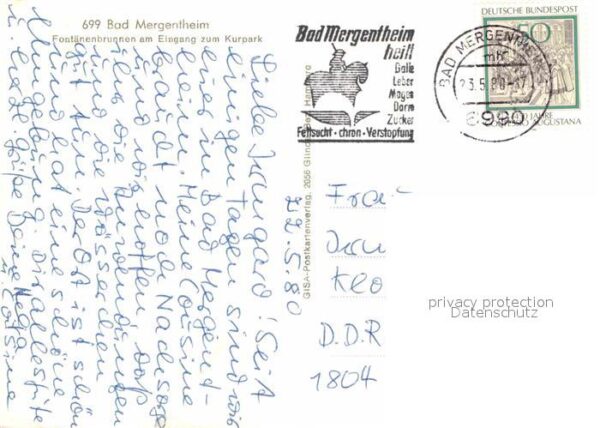 699 Bad Mergentheim
Fontänenbrunnen am Eingang zum Kurpark
Bad Mergentheim
heilt
Galle
Leber
Magen
Darm
Zucker
Fettsucht · chron · Verstopfung
DEUTSCHE BUNDESPOST
50
AUGUSTANA
BAD MERGENTHEIM
23.5.80-17
6990
GISA-Postkartenverlag, 2056
22.5.80
Liebe Irmgard! Seit
einigen Tagen sind wir
in Bad Mergent-
heim. Meine Cousine
braucht mal Nachsorge
und wir hoffen daß
die Kuranwendungen
und die Wässerchen
gut tun. Der Ort ist schön
und hat eine schöne
Umgebung. Dir alles Gute
u. liebe Grüße Deine
Cousine
Frau
Irm
Klo
D.D.R
1804
privacy protection
Datenschutz